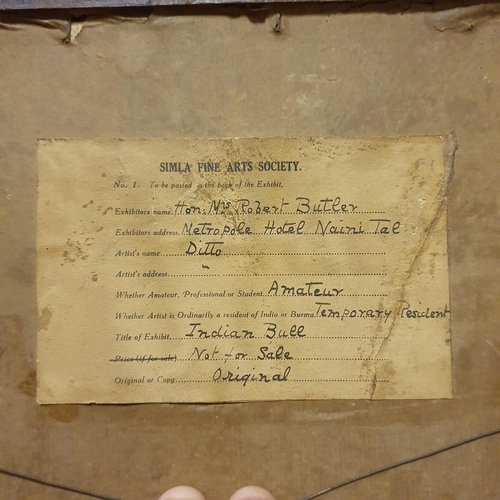 SIMLA FINE ARTS SOCIETY.
No. 1. To be pasted on the back of the Exhibit.
Exhibitors name Hon. Mrs Robert Butler
Exhibitors address Metropole Hotel Naini Tal
Artist's name Ditto
Artist's address "
Whether Amateur, Professional or Student Amateur
Whether Artist is Ordinarily a resident of India or Burma Temporary Resident
Title of Exhibit Indian Bull
Price (if for sale) Not for Sale
Original or Copy Original